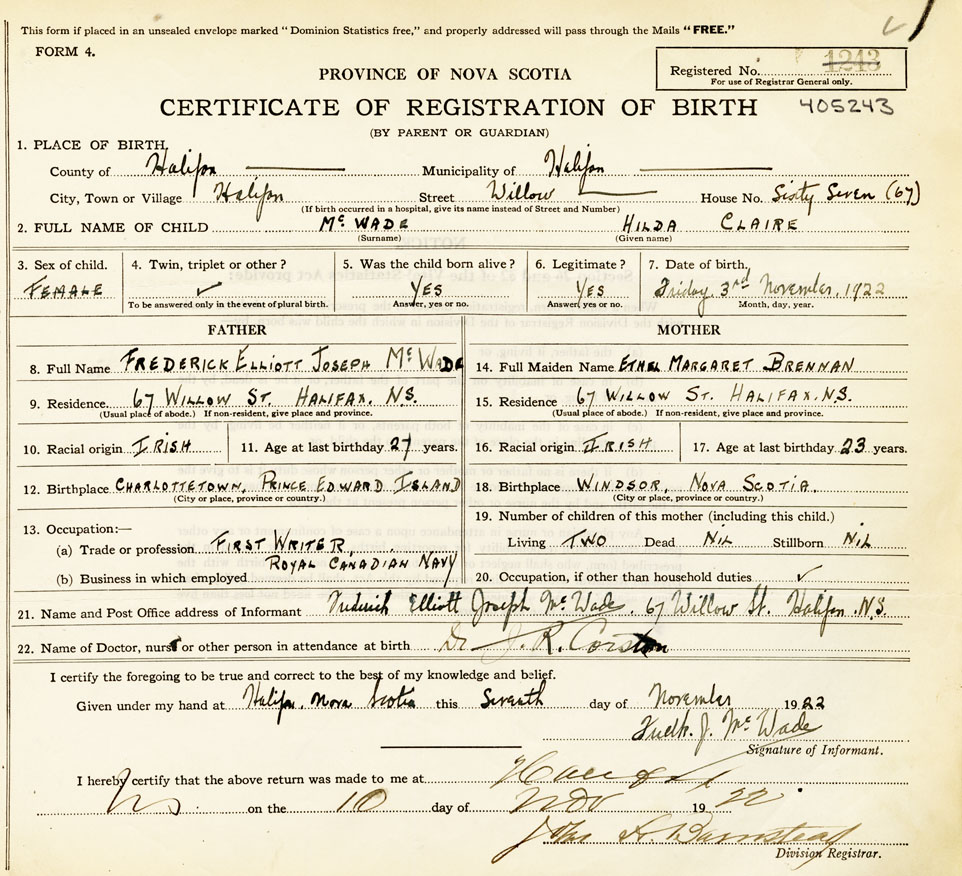 This form if placed in an unsealed envelope marked "Dominion Statistics free," and properly addressed will pass through the Mails "FREE."
FORM 4.
Registered No. 1243
For use of Registrar General only.
PROVINCE OF NOVA SCOTIA
CERTIFICATE OF REGISTRATION OF BIRTH 405243
(BY PARENT OR GUARDIAN)
1. PLACE OF BIRTH,
County of Halifax Municipality of Halifax
City, Town or Village Halifax Street Willow House No. Sixty Seven (67)
(If birth occurred in a hospital, give its name instead of Street and Number)
2. FULL NAME OF CHILD McWADE HILDA CLAIRE
(Surname) (Given name)
3. Sex of child. 4. Twin, triplet or other? 5. Was the child born alive? 6. Legitimate? 7. Date of birth,
FEMALE YES YES Friday, 3rd November, 1922
To be answered only in the event of plural birth. Answer, yes or no. Answer, yes or no. Month, day, year.
FATHER MOTHER
8. Full Name FREDERICK ELLIOTT JOSEPH McWADE 14. Full Maiden Name ETHEL MARGARET BRENNAN
9. Residence 67 WILLOW ST. HALIFAX. N.S. 15. Residence 67 WILLOW ST. HALIFAX. N.S.
(Usual place of abode.) If non-resident, give place and province. (Usual place of abode.) If non-resident, give place and province.
10. Racial origin IRISH 11. Age at last birthday 27 years. 16. Racial origin IRISH 17. Age at last birthday 23 years.
12. Birthplace CHARLOTTETOWN, PRINCE EDWARD ISLAND 18. Birthplace WINDSOR, NOVA SCOTIA.
(City or place, province or country.) (City or place, province or country.)
13. Occupation:— 19. Number of children of this mother (including this child.)
(a) Trade or profession FIRST WRITER, Living TWO Dead NIL Stillborn NIL
ROYAL CANADIAN NAVY
(b) Business in which employed 20. Occupation, if other than household duties
21. Name and Post Office address of Informant Frederick Elliott Joseph McWade. 67 Willow St. Halifax. N.S.
22. Name of Doctor, nurse or other person in attendance at birth Dr J. R. Corston
I certify the foregoing to be true and correct to the best of my knowledge and belief.
Given under my hand at Halifax. Nova Scotia this Seventh day of November 1922
Fredk. J. McWade
Signature of Informant.
I hereby certify that the above return was made to me at Halifax
N.S. on the 10 day of Nov 1922
John A. Barnstead
Division Registrar.